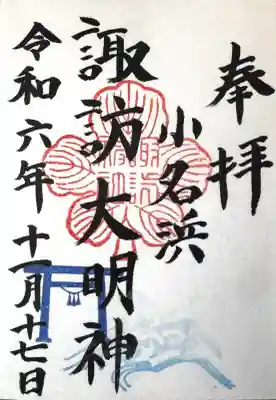 奉拝
小名浜
諏訪大明神
令和六年 十一月十七日